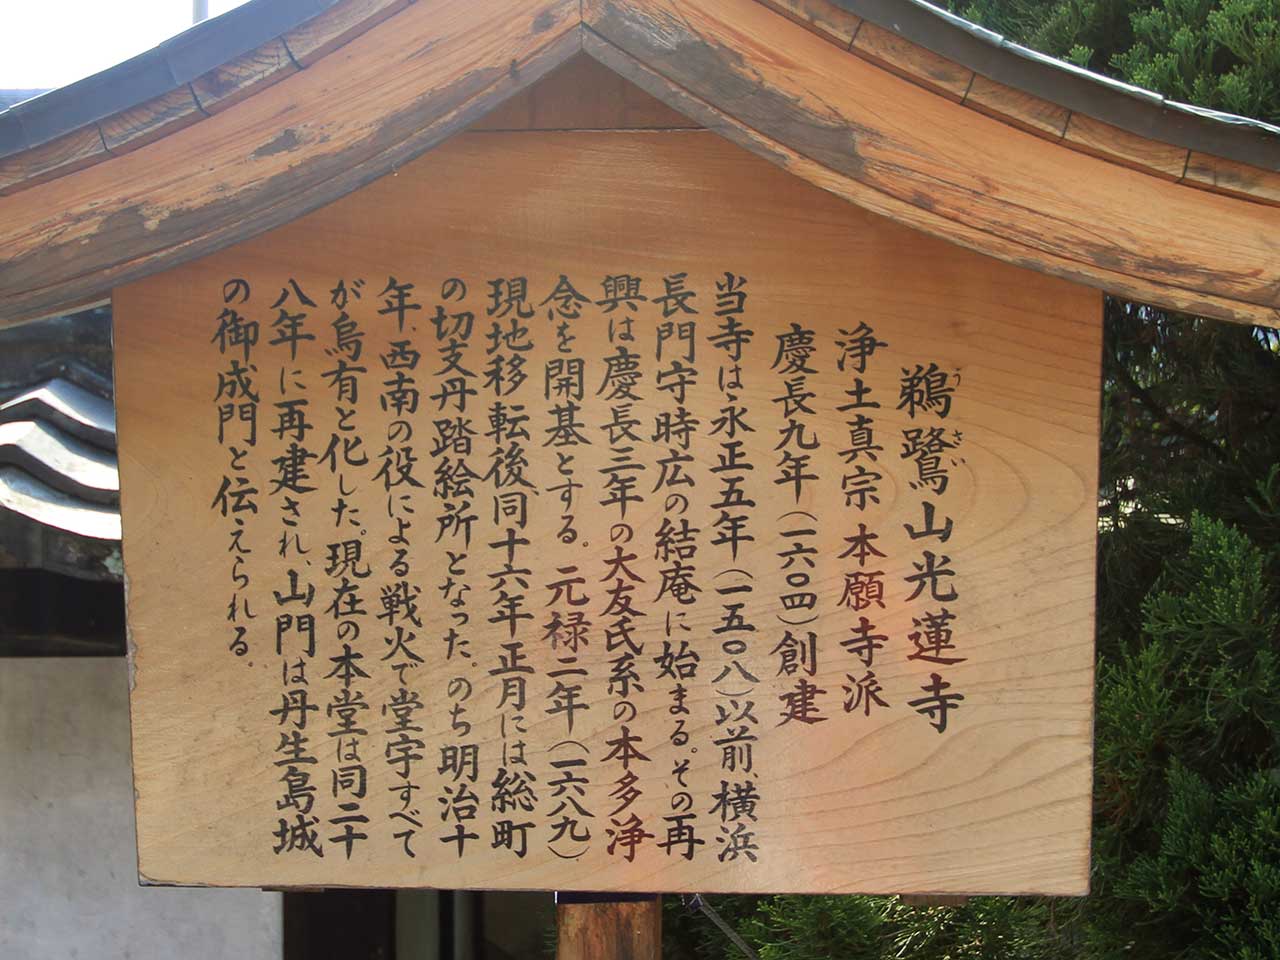 鵜鷺山光蓮寺
うさい
浄土真宗 本願寺派
慶長九年(一六〇四)創建
当寺は永正五年(一五〇八)以前、横浜
長門守時広の結庵に始まる。その再
興は慶長三年の大友氏系の本多浄
念を開基とする。元禄二年(一六八九)
現地移転後、同十六年正月には総町
の切支丹踏絵所となった。のち明治十
年、西南の役による戦火で堂宇すべて
が烏有と化した。現在の本堂は同二十
八年に再建され、山門は丹生島城
の御成門と伝えられる。